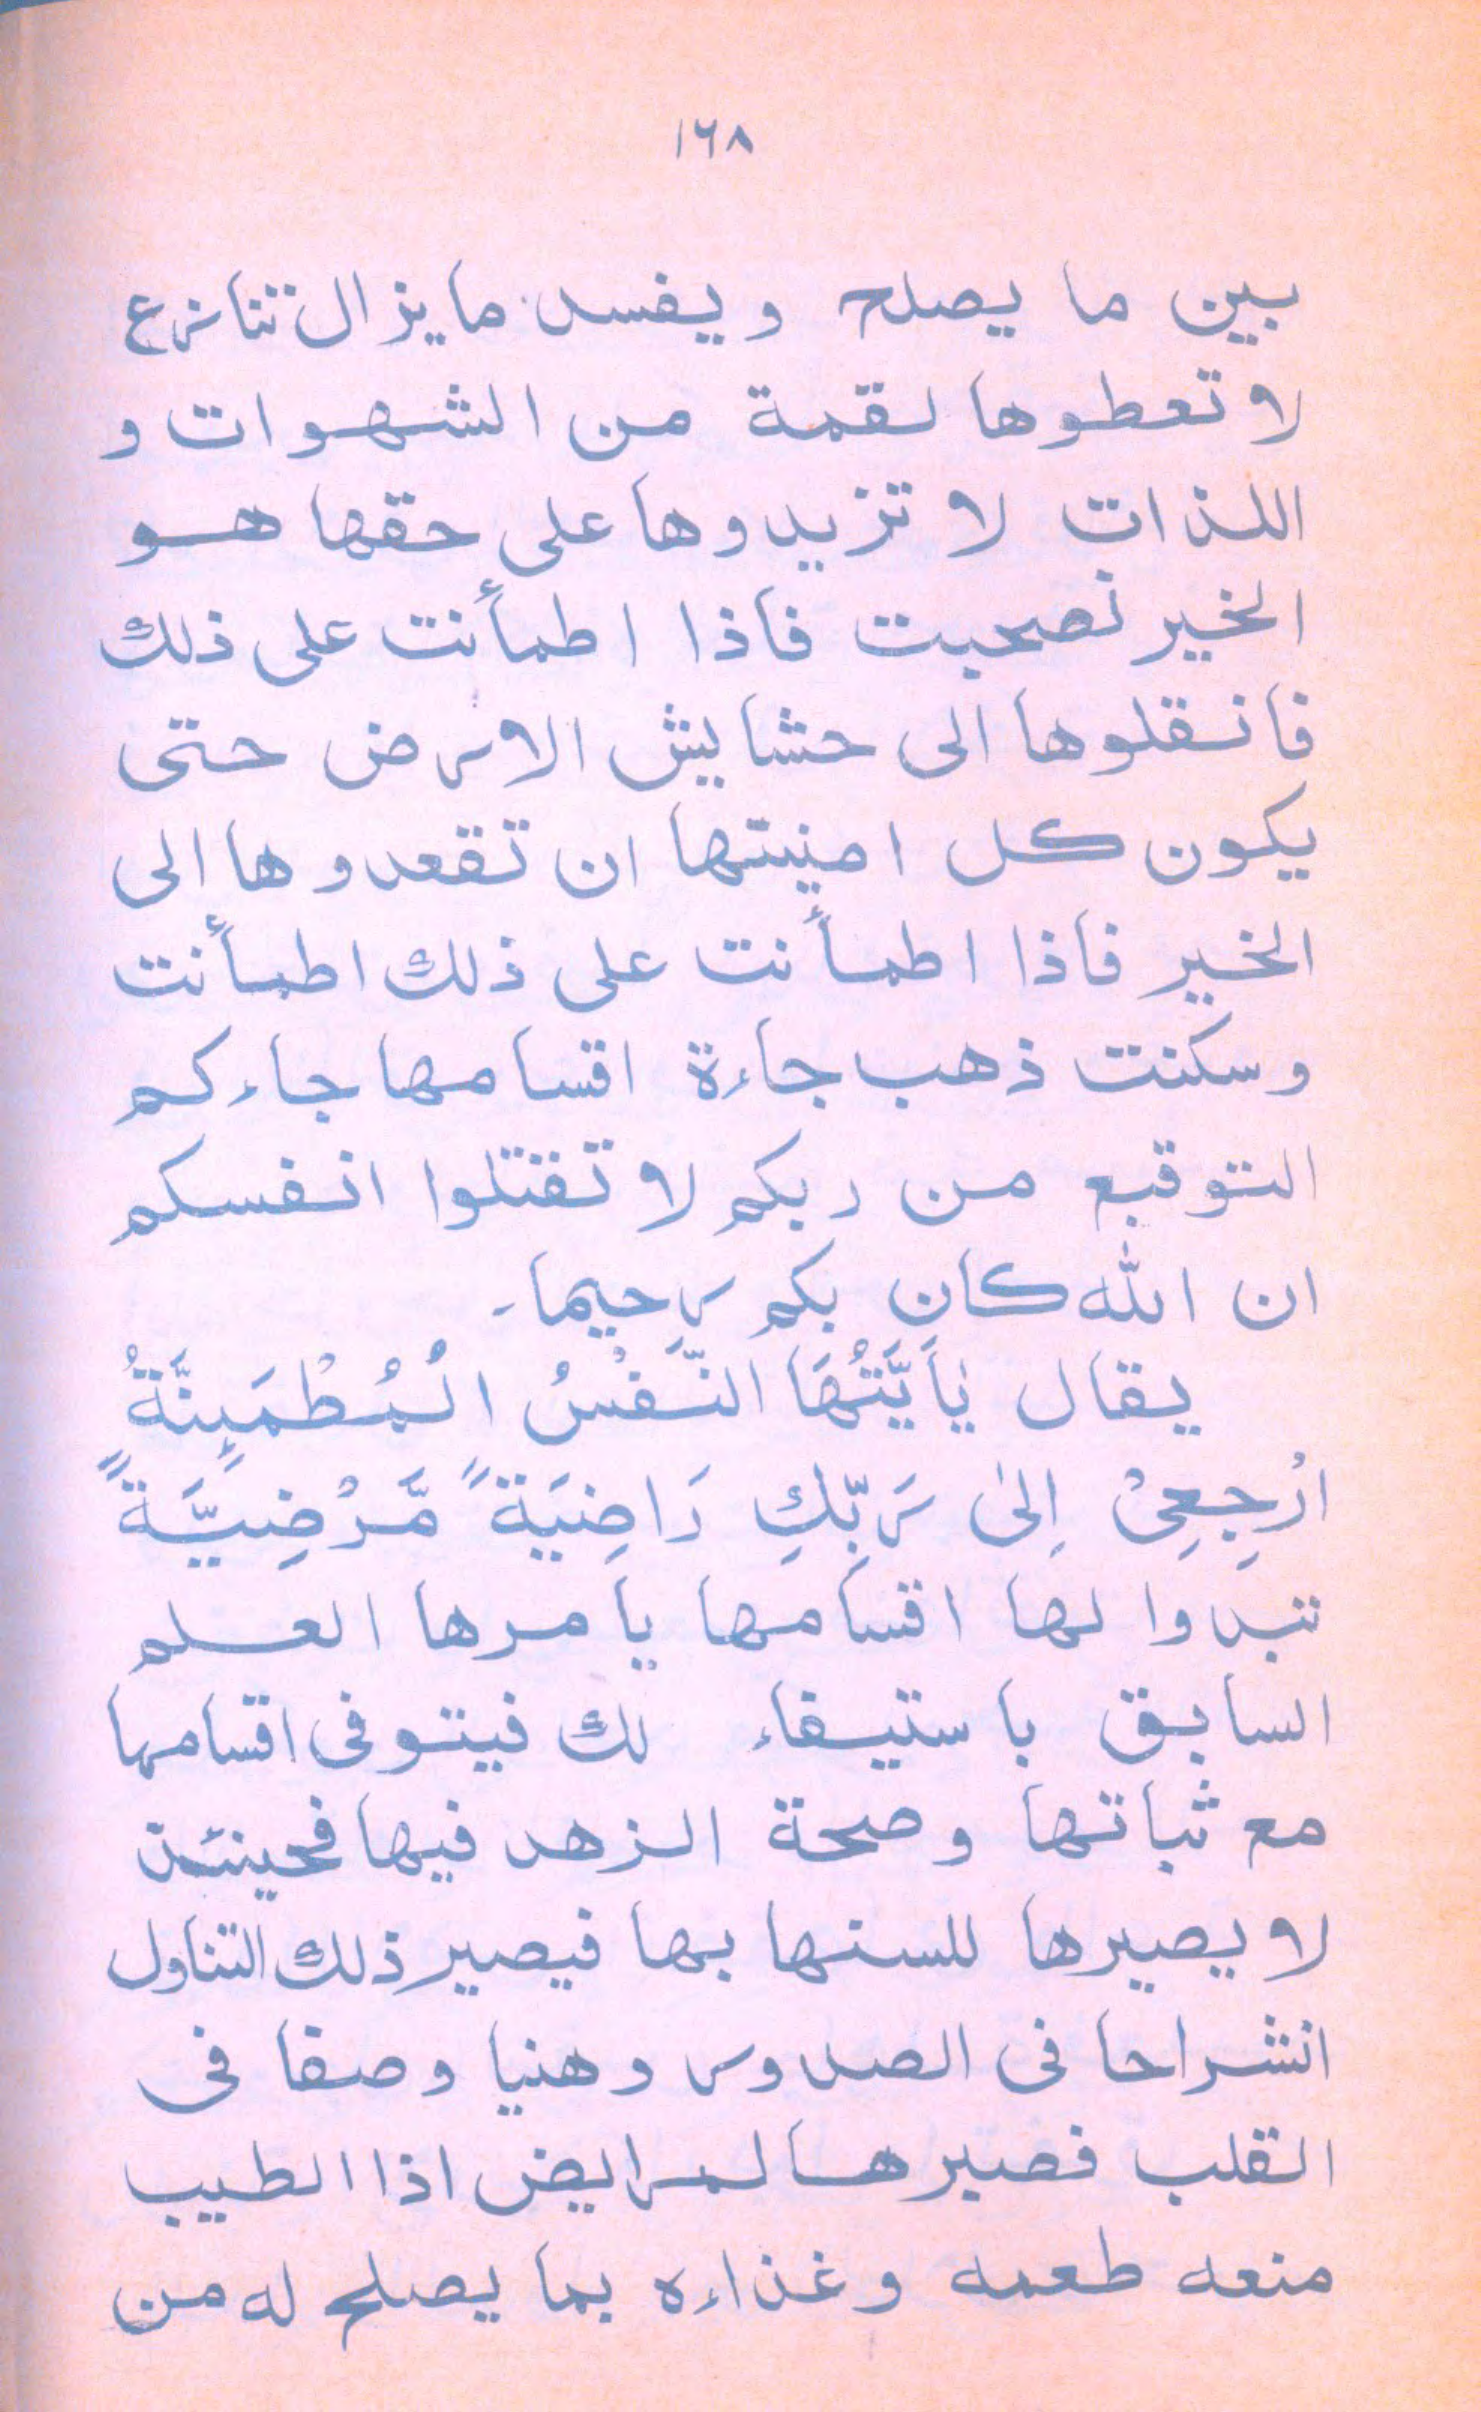 ١٦٨
بين ما يصلح ويفسد ما يزال تنازع
لا تعطوها لقمة من الشهوات و
اللذات لا تزيدوها على حقها هو
الخير نصحبت فاذا اطمأنت على ذلك
فانقلوها الى حشايش الارض حتى
يكون كل امنيتها ان تقعدوها الى
الخير فاذا اطمأنت على ذلك اطمأنت
وسكنت ذهب جاءة اقسامها جاءكم
التوقيع من ربكم لا تقتلوا انفسكم
ان الله كان بكم رحيما۔
يقال يٰاَيَّتُهَا النَّفْسُ الْمُطْمَىِٕنَّةُ
ارْجِعِىْ اِلىٰ رَبِّكِ رَاضِيَةً مَّرْضِيَّةً
تبدوا لها اقسامها يامرها العلم
السابق باستيفاء لك فيتوفى اقسامها
مع ثباتها وصحة الزهد فيها فحينئذ
لا يصيرها للسنها بها فيصير ذلك التناول
انشراحا فى الصدور وهنيا وصفا فى
القلب فصبرها لمرايض اذا الطيب
منعه طعمه وغذاءه بما يصلح له من